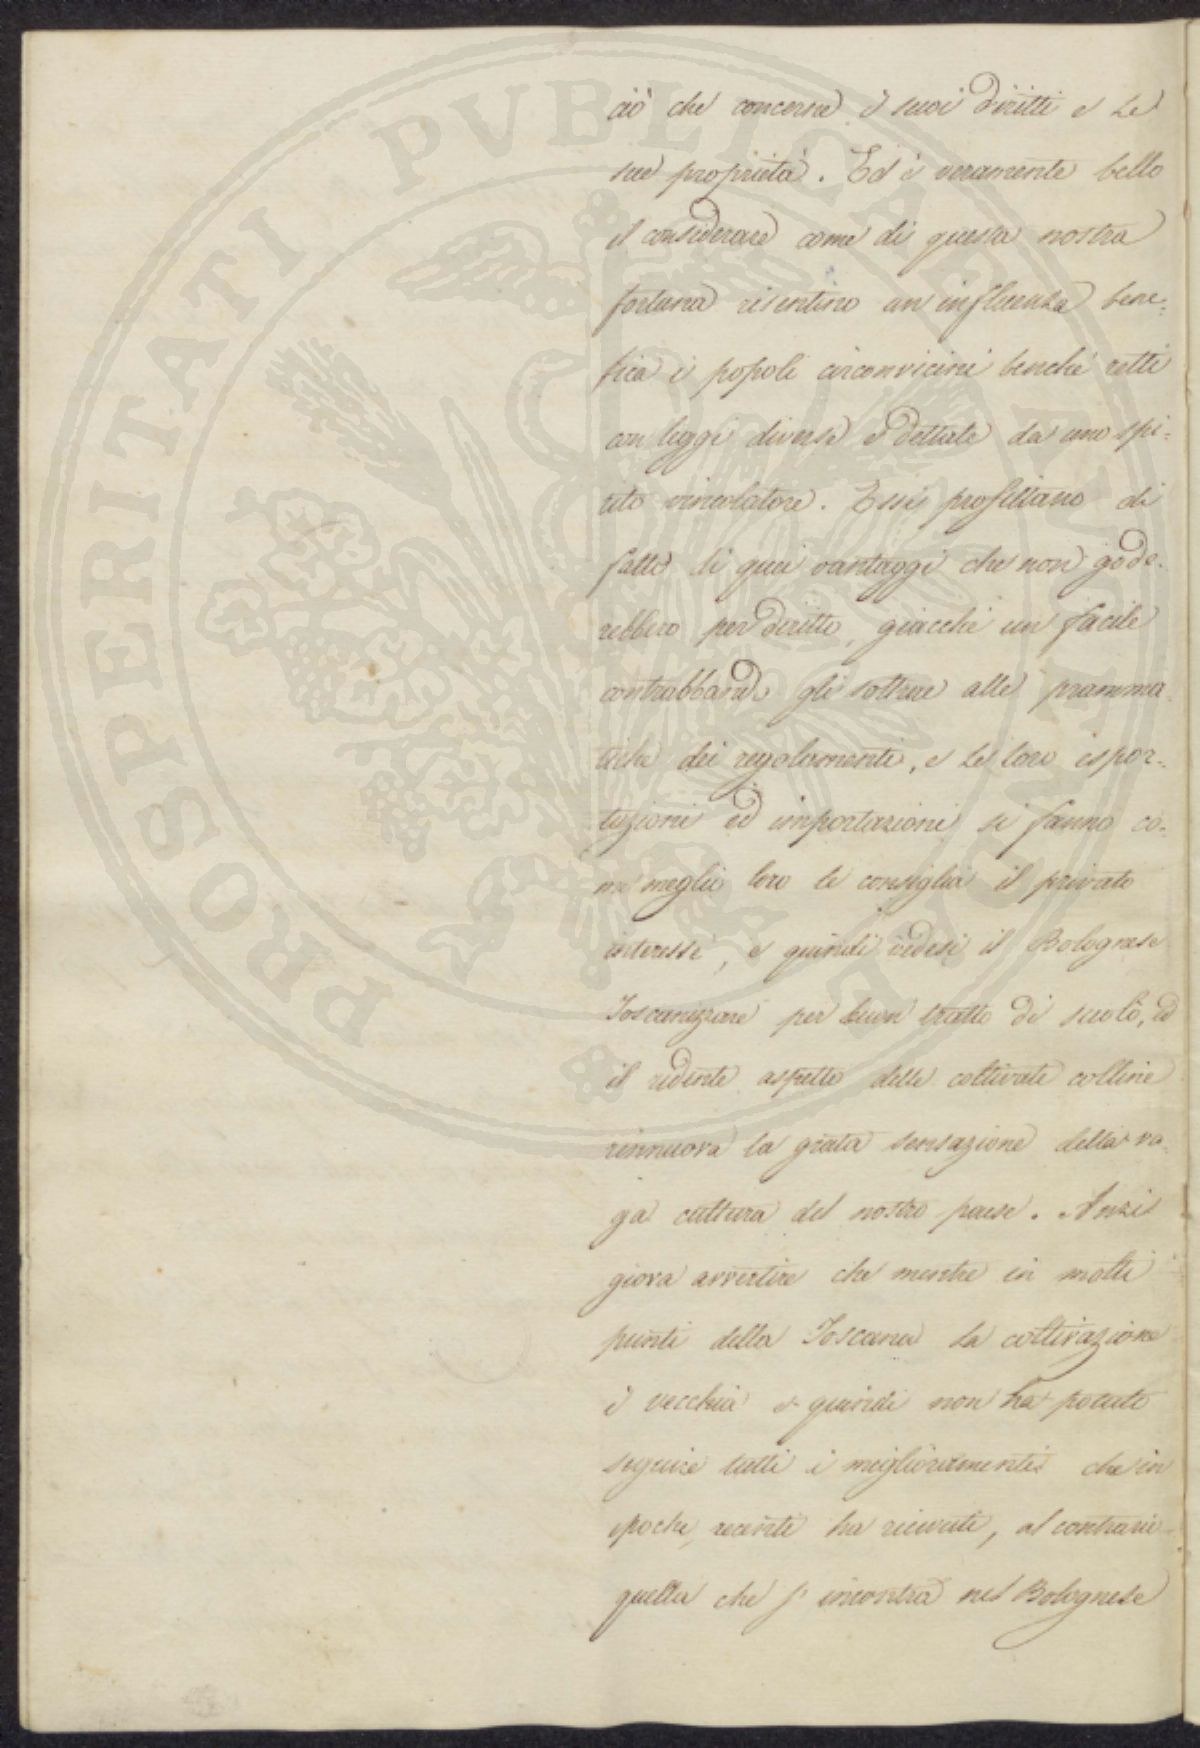 PROSPERITATI PVBLICAE AVGENDAE
ciò che concerne i suoi diritti e le
sue proprietà. Ed è veramente bello
il considerare come di questa nostra
fortuna risentino un influenza bene=
fica i popoli circonvicini benchè retti
con leggi diverse e dettate da uno spi=
rito vincolatore. Essi profittano di
fatto di quei vantaggi che non gode-
rebbero per diritto, giacchè un facile
contrabbando gli sottrae alle pramma
tiche dei regolamenti, e le loro espor-
tazioni ed importazioni si fanno co-
me meglio loro le consiglia il privato
interesse, e quindi vedesi il Bolognese
Toscanizzare per buon tratto di suolo, ed
il ridente aspetto delle coltivate colline
rinnuova la grata sensazione della va
ga cultura del nostro paese. Anzi
giova avvertire che mentre in molti
punti della Toscana la coltivazione
è vecchia e quindi non ha potuto
seguire tutti i miglioramenti che in
epoche recenti ha ricevuti, al contrario
quella che s' incontra nel Bolognese